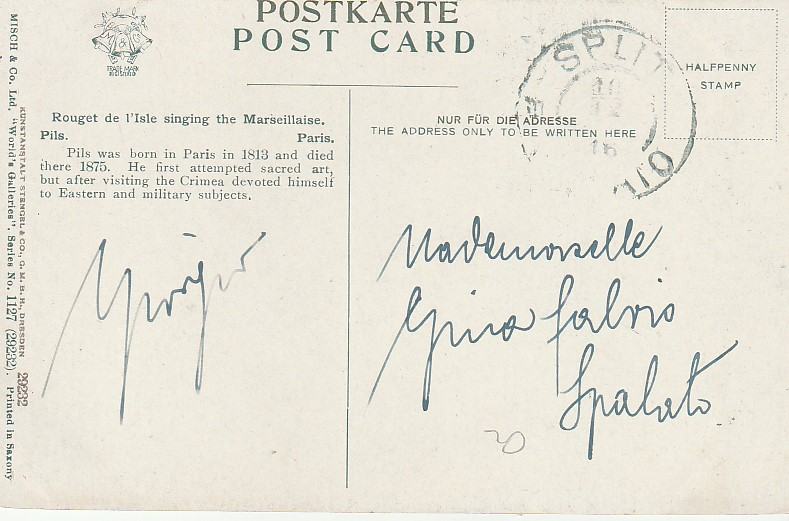 POSTKARTE
POST CARD
M & C
TRADE MARK
REGISTERED
SPLIT
12
16
HALFPENNY
STAMP
Rouget de l'Isle singing the Marseillaise.
Pils. Paris.
Pils was born in Paris in 1813 and died
there 1875. He first attempted sacred art,
but after visiting the Crimea devoted himself
to Eastern and military subjects.
NUR FÜR DIE ADRESSE
THE ADDRESS ONLY TO BE WRITTEN HERE
Mademoiselle
Gina Salvio
Spalato
KUNSTANSTALT STENGEL & CO., G. M. B. H., DRESDEN 29232
MISCH & Co. Ltd. "World's Galleries", Series No. 1127 (29232). Printed in Saxony